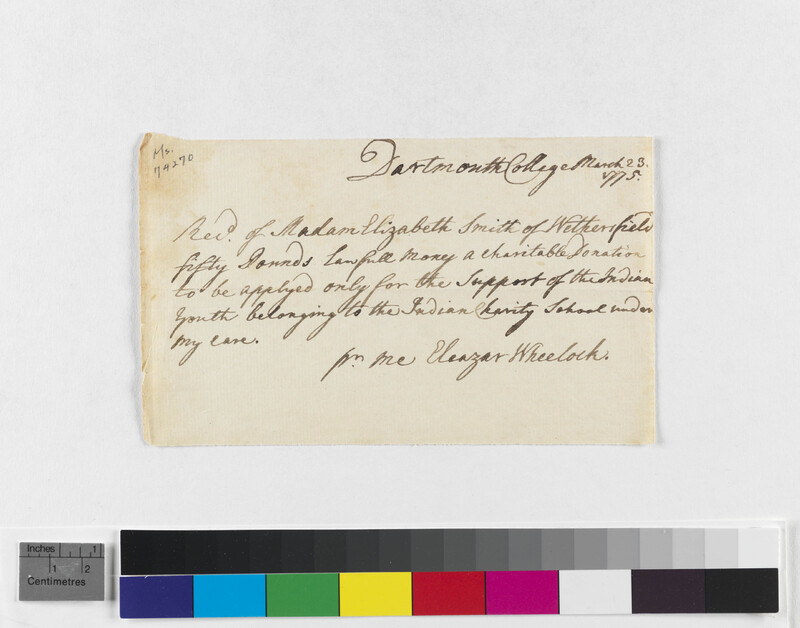 Ms.
74270
Dartmouth College March 23.
1775.
Recd. of Madam Elizabeth Smith of Wethersfield
fifty Pounds lawfull Money a charitable Donation
to be applyed only for the Support of the Indian
Youth belonging to the Indian Charity School under
my care.
pr. me Eleazar Wheelock.
Inches 1
1 2
Centimetres